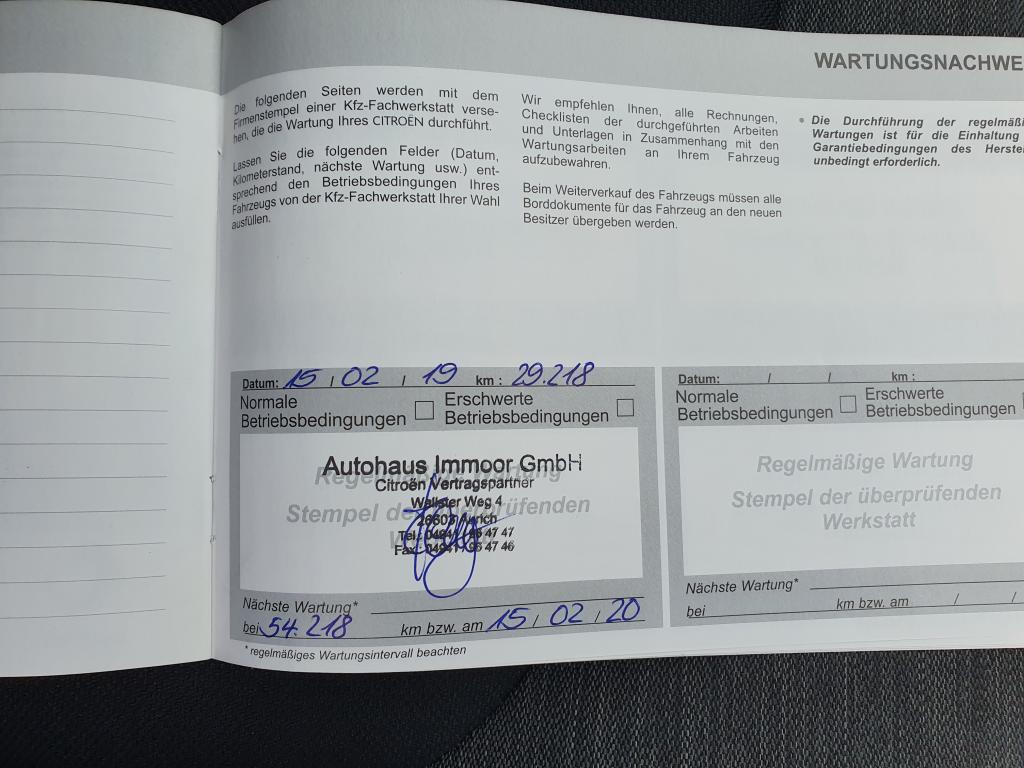 WARTUNGSNACHWE
Die folgenden Seiten werden mit dem
Firmenstempel einer Kfz-Fachwerkstatt verse-
hen, die die Wartung Ihres CITROËN durchführt.
Lassen Sie die folgenden Felder (Datum,
Kilometerstand, nächste Wartung usw.) ent-
sprechend den Betriebsbedingungen Ihres
Fahrzeugs von der Kfz-Fachwerkstatt Ihrer Wahl
ausfüllen.
Wir empfehlen Ihnen, alle Rechnungen,
Checklisten der durchgeführten Arbeiten
und Unterlagen in Zusammenhang mit den
Wartungsarbeiten an Ihrem Fahrzeug
aufzubewahren.
Beim Weiterverkauf des Fahrzeugs müssen alle
Borddokumente für das Fahrzeug an den neuen
Besitzer übergeben werden.
• Die Durchführung der regelmäßi
Wartungen ist für die Einhaltung
Garantiebedingungen des Herste
unbedingt erforderlich.
Datum: 15 / 02 / 19 km : 29.218
Normale
Betriebsbedingungen
Erschwerte
Betriebsbedingungen
Regelmäßige Wartung
Stempel der überprüfenden
Autohaus Immoor GmbH
Citroën Vertragspartner
Wallster Weg 4
26603 Aurich
Tel.: 04941 - 95 47 47
Fax: 04941 - 95 47 46
Nächste Wartung*
bei 54.218 km bzw. am 15 / 02 / 20
* regelmäßiges Wartungsintervall beachten
Datum: / / km :
Normale
Betriebsbedingungen
Erschwerte
Betriebsbedingungen
Regelmäßige Wartung
Stempel der überprüfenden
Werkstatt
Nächste Wartung*
bei km bzw. am / /